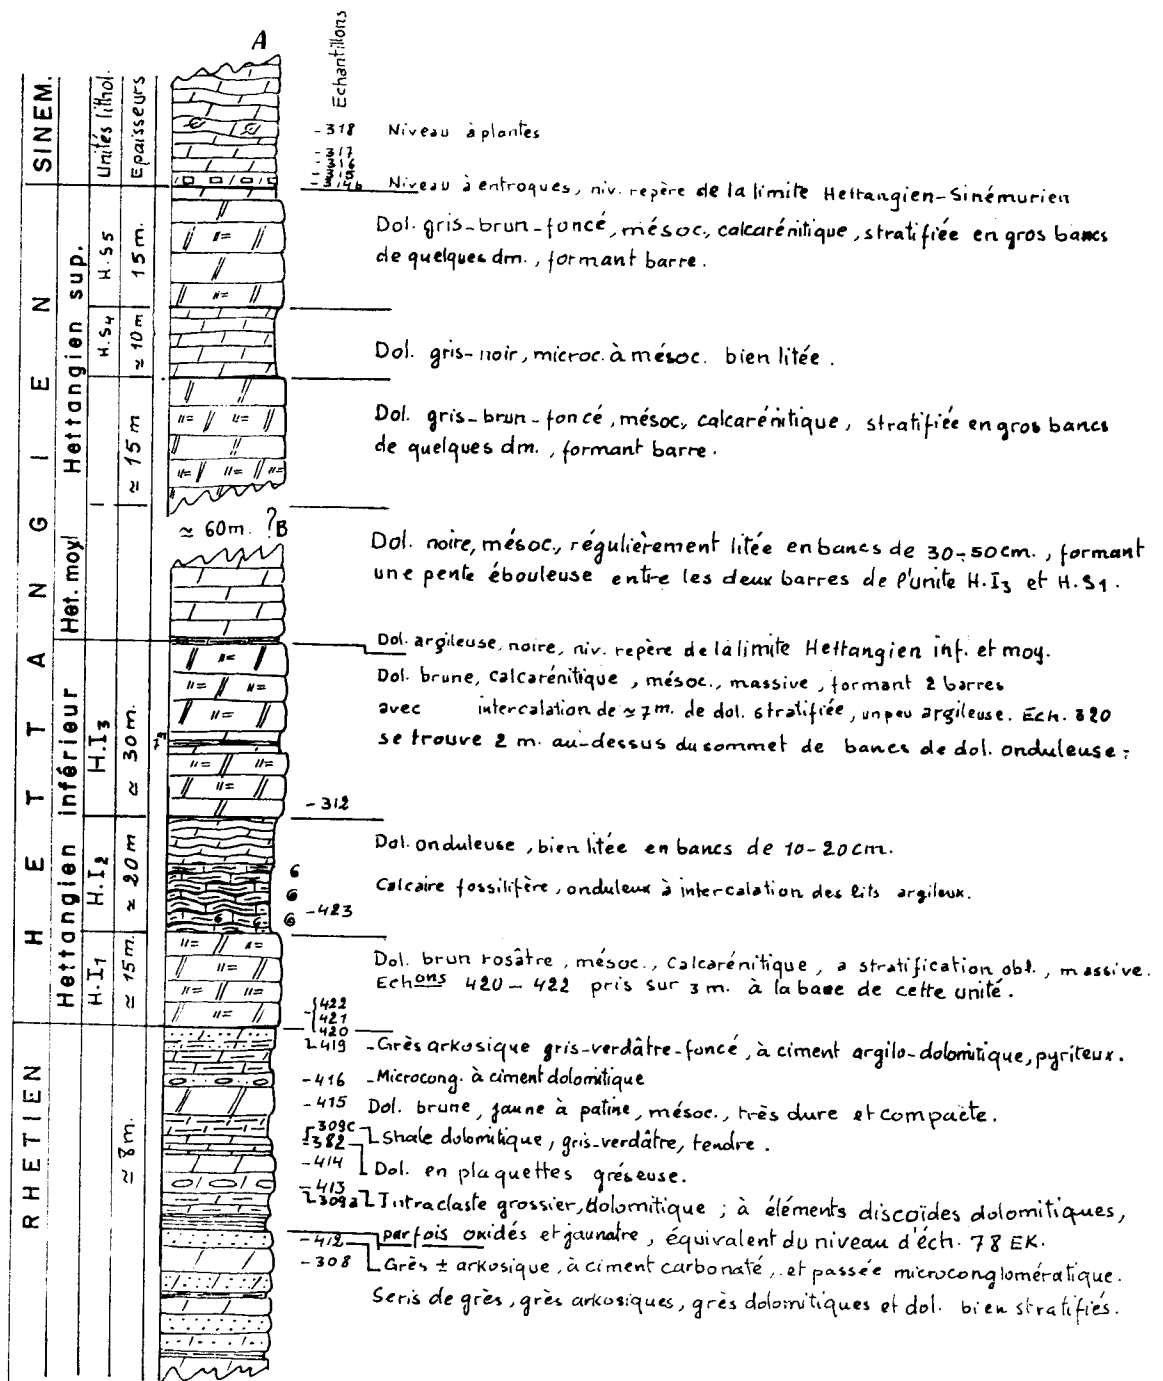 A
Echantillons
SINEM.
Unités lithol.
Epaisseurs
-318 Niveau à plantes
-317
-316
-315
-314b Niveau à entroques, niv. repère de la limite Hettangien-Sinémurien
HETTANGIEN
Hettangien sup.
H.S5
15 m.
Dol. gris-brun-foncé, mésoc., calcarénitique, stratifiée en gros bancs
de quelques dm., formant barre.
H.S4
≈ 10 m
Dol. gris-noir, microc. à mésoc. bien litée.
≈ 15 m
Dol. gris-brun-foncé, mésoc, calcarénitique, stratifiée en gros bancs
de quelques dm., formant barre.
≈ 60 m. ? B
Het. moy
Dol. noire, mésoc., régulièrement litée en bancs de 30-50 cm., formant
une pente ébouleuse entre les deux barres de l'unite H.I3 et H.S1.
Dol. argileuse, noire, niv. repère de la limite Hettangien inf. et moy.
Hettangien inférieur
H.I3
≈ 30 m.
7m
Dol. brune, calcarénitique, mésoc., massive, formant 2 barres
avec intercalation de ≈ 7 m. de dol. stratifiée, un peu argileuse. Ech. 320
se trouve 2 m. au-dessus du sommet de bancs de dol. onduleuse.
-312
H.I2
≈ 20 m
Dol. onduleuse, bien litée en bancs de 10-20 cm.
Calcaire fossilifère, onduleux à intercalation des lits argileux.
-423
H.I1
≈ 15 m.
Dol. brun rosâtre, mésoc., calcarénitique, a stratification obl., massive.
Echons 420-422 pris sur 3 m. à la base de cette unité.
422
421
420
RHETIEN
≈ 8 m.
419 -Grès arkosique gris-verdâtre-foncé, à ciment argilo-dolomitique, pyriteux.
-416 -Microcong. à ciment dolomitique
-415 Dol. brune, jaune à patine, mésoc., très dure et compacte.
309c
382 Shale dolomitique, gris-verdâtre, tendre.
-414 Dol. en plaquettes gréseuse.
-413
309a Intraclaste grossier, dolomitique ; à éléments discoïdes dolomitiques,
-412 parfois oxidés et jaunatre, équivalent du niveau d'éch. 78 EK.
-308 Grès ± arkosique, à ciment carbonaté, et passée microconglomératique.
Seris de grès, grès arkosiques, grès dolomitiques et dol. bien stratifiés.